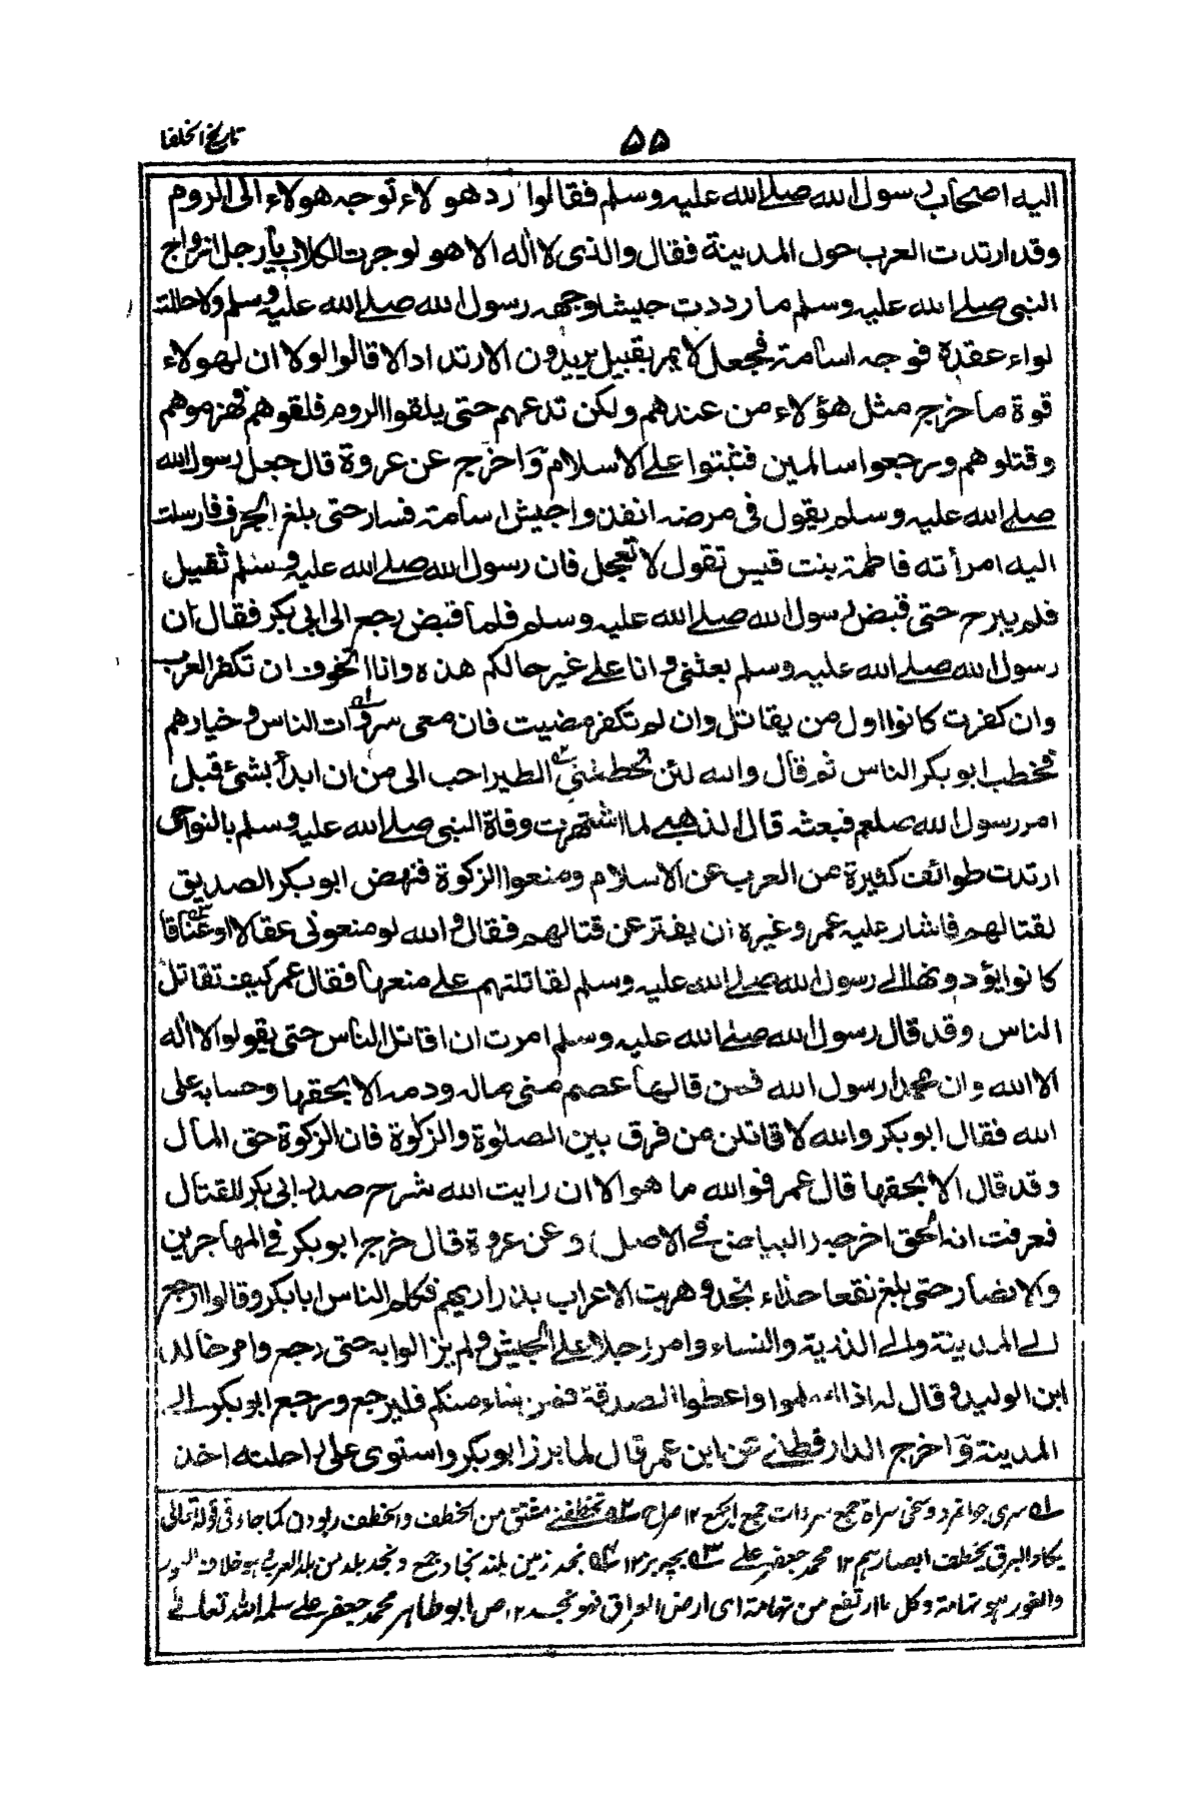 تاريخ الخلفا
۵۵
اليه اصحاب رسول الله صلے الله عليه وسلم فقالوا رد هولاء توجه هولاء الى الروم
وقد ارتدت العرب حول المدينة فقال والذى لا اله الا هو لو جرت الكلاب بأرجل ازواج
النبى صلے الله عليه وسلم ما رددت جيشا وجهه رسول الله صلے الله عليه وسلم ولا حللت
لواء عقده فوجه اسامة فجعل لا يمر بقبيل يريدون الارتداد الا قالوا لولا ان لهولاء
قوة ما خرج مثل هؤلاء من عندهم ولكن تدعهم حتى يلقوا الروم فلقوهم فهزموهم
وقتلوهم ورجعوا سالمين فثبتوا على الاسلام واخرج عن عروة قال جعل رسول الله
صلے الله عليه وسلم يقول فى مرضه انفذوا جيش اسامة فسار حتى بلغ الجرف فارسلت
اليه امرأته فاطمة بنت قيس تقول لا تعجل فان رسول الله صلے الله عليه وسلم ثقيل
فلم يبرح حتى قبض رسول الله صلے الله عليه وسلم فلما قبض رجع الى ابى بكر فقال ان
رسول الله صلے الله عليه وسلم بعثنى وانا على غير حالكم هذه وانا اتخوف ان تكفر العرب
وان كفرت كانوا اول من يقاتل وان لم تكفر مضيت فان معى سروات الناس وخيارهم
فخطب ابو بكر الناس ثم قال والله لئن تخطفنى الطير احب الى من ان ابدأ بشئ قبل
امر رسول الله صلعم فبعثه قال الذهبى لما اشتهرت وفاة النبى صلے الله عليه وسلم بالنواحى
ارتدت طوائف كثيرة من العرب عن الاسلام ومنعوا الزكوة فنهض ابو بكر الصديق
لقتالهم فاشار عليه عمر وغيره ان يفتر عن قتالهم فقال والله لو منعونى عقالا او عناقا
كانوا يؤدونها الى رسول الله صلے الله عليه وسلم لقاتلتهم على منعها فقال عمر كيف تقاتل
الناس وقد قال رسول الله صلے الله عليه وسلم امرت ان اقاتل الناس حتى يقولوا لا اله
الا الله وان محمدا رسول الله فمن قالها عصم منى ماله ودمه الا بحقها وحسابه على
الله فقال ابو بكر والله لاقاتلن من فرق بين الصلوة والزكوة فان الزكوة حق المال
وقد قال الا بحقها قال عمر فوالله ما هو الا ان رايت الله شرح صدر ابى بكر للقتال
فعرفت انه الحق اخرجه (البياض فى الاصل) وعن عروة قال خرج ابو بكر فى المهاجرين
والانصار حتى بلغ نقعا حذاء نجد وهربت الاعراب بذراريهم فكلم الناس ابا بكر وقالوا ارجع
الى المدينة والى الذرية والنساء وامر رجلا على الجيش ولم يزالوا به حتى رجع وامر خالد
ابن الوليد وقال له اذا اسلموا واعطوا الصدقة فمن شاء منكم فليرجع ورجع ابو بكر الى
المدينة واخرج الدارقطنى عن ابن عمر قال لما برز ابو بكر واستوى على راحلته اخذ
سرى جوانمرد وسخى سراة جمع سروات جمع الجمع ۱۲ صراح تخطفنى مشتق من الخطف والخطف ربودن كما جاء فى قوله تعالى
يكاد البرق يخطف ابصارهم ۱۲ محمد جعفر على بچه بز ۱۲ نجد زمين بلند نجاد جمع ونجد بلد من بلد العرب وهو خلاف الغور
والغور هو تهامة وكل ما ارتفع من تهامة اى ارض العراق فهو نجد ۱۲ ص ابو طاهر محمد جعفر على سلمه الله تعالى